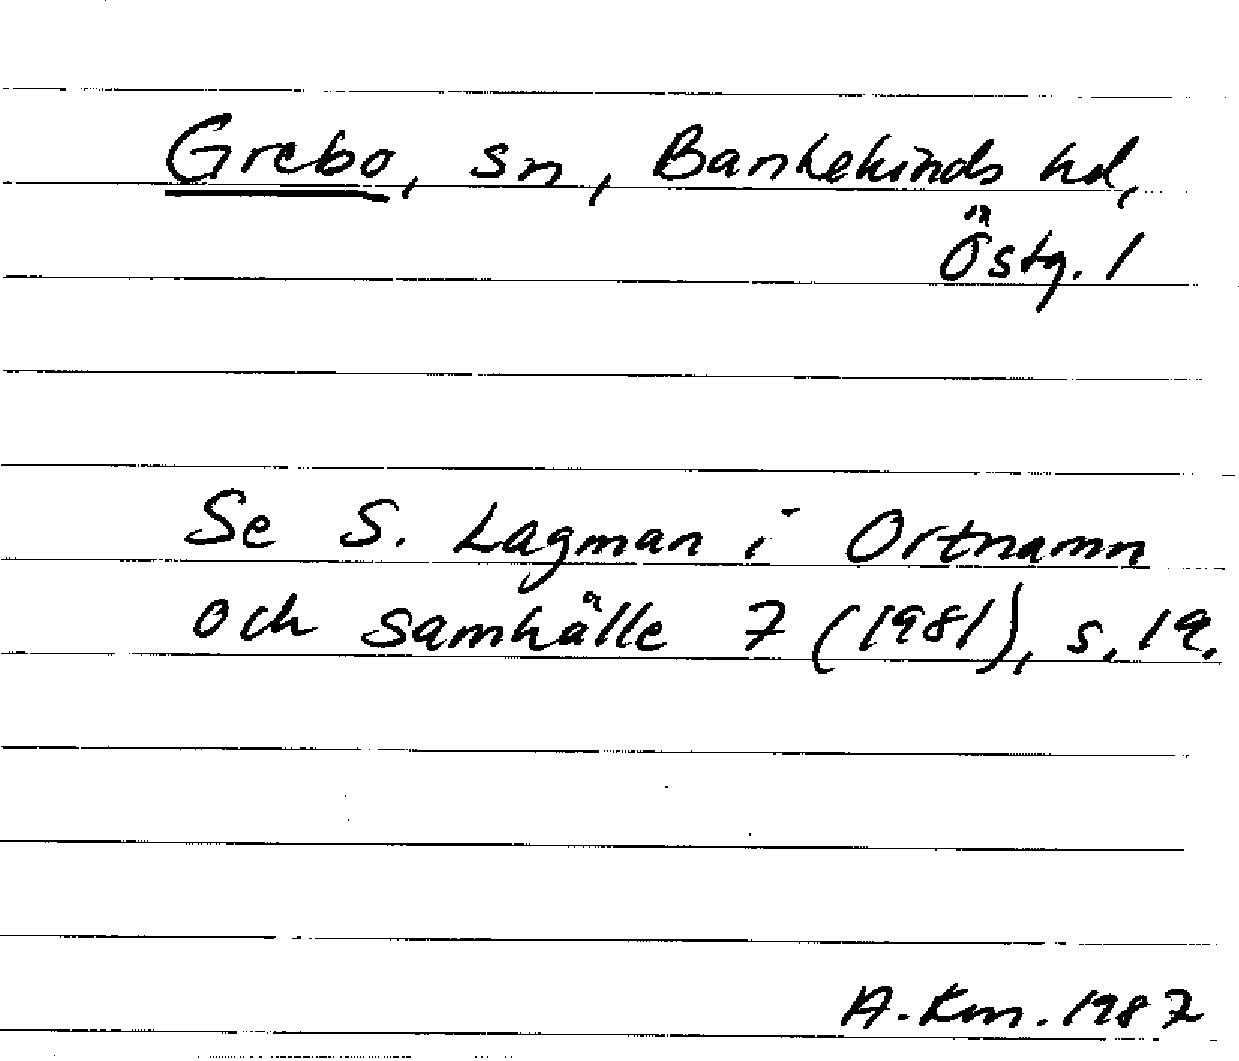 Grebo, sn, Bankekinds hd,
Östg. l
Se S. Lagman i Ortnamn
och samhälle 7 (1981), s. 19.
A. Km. 1987